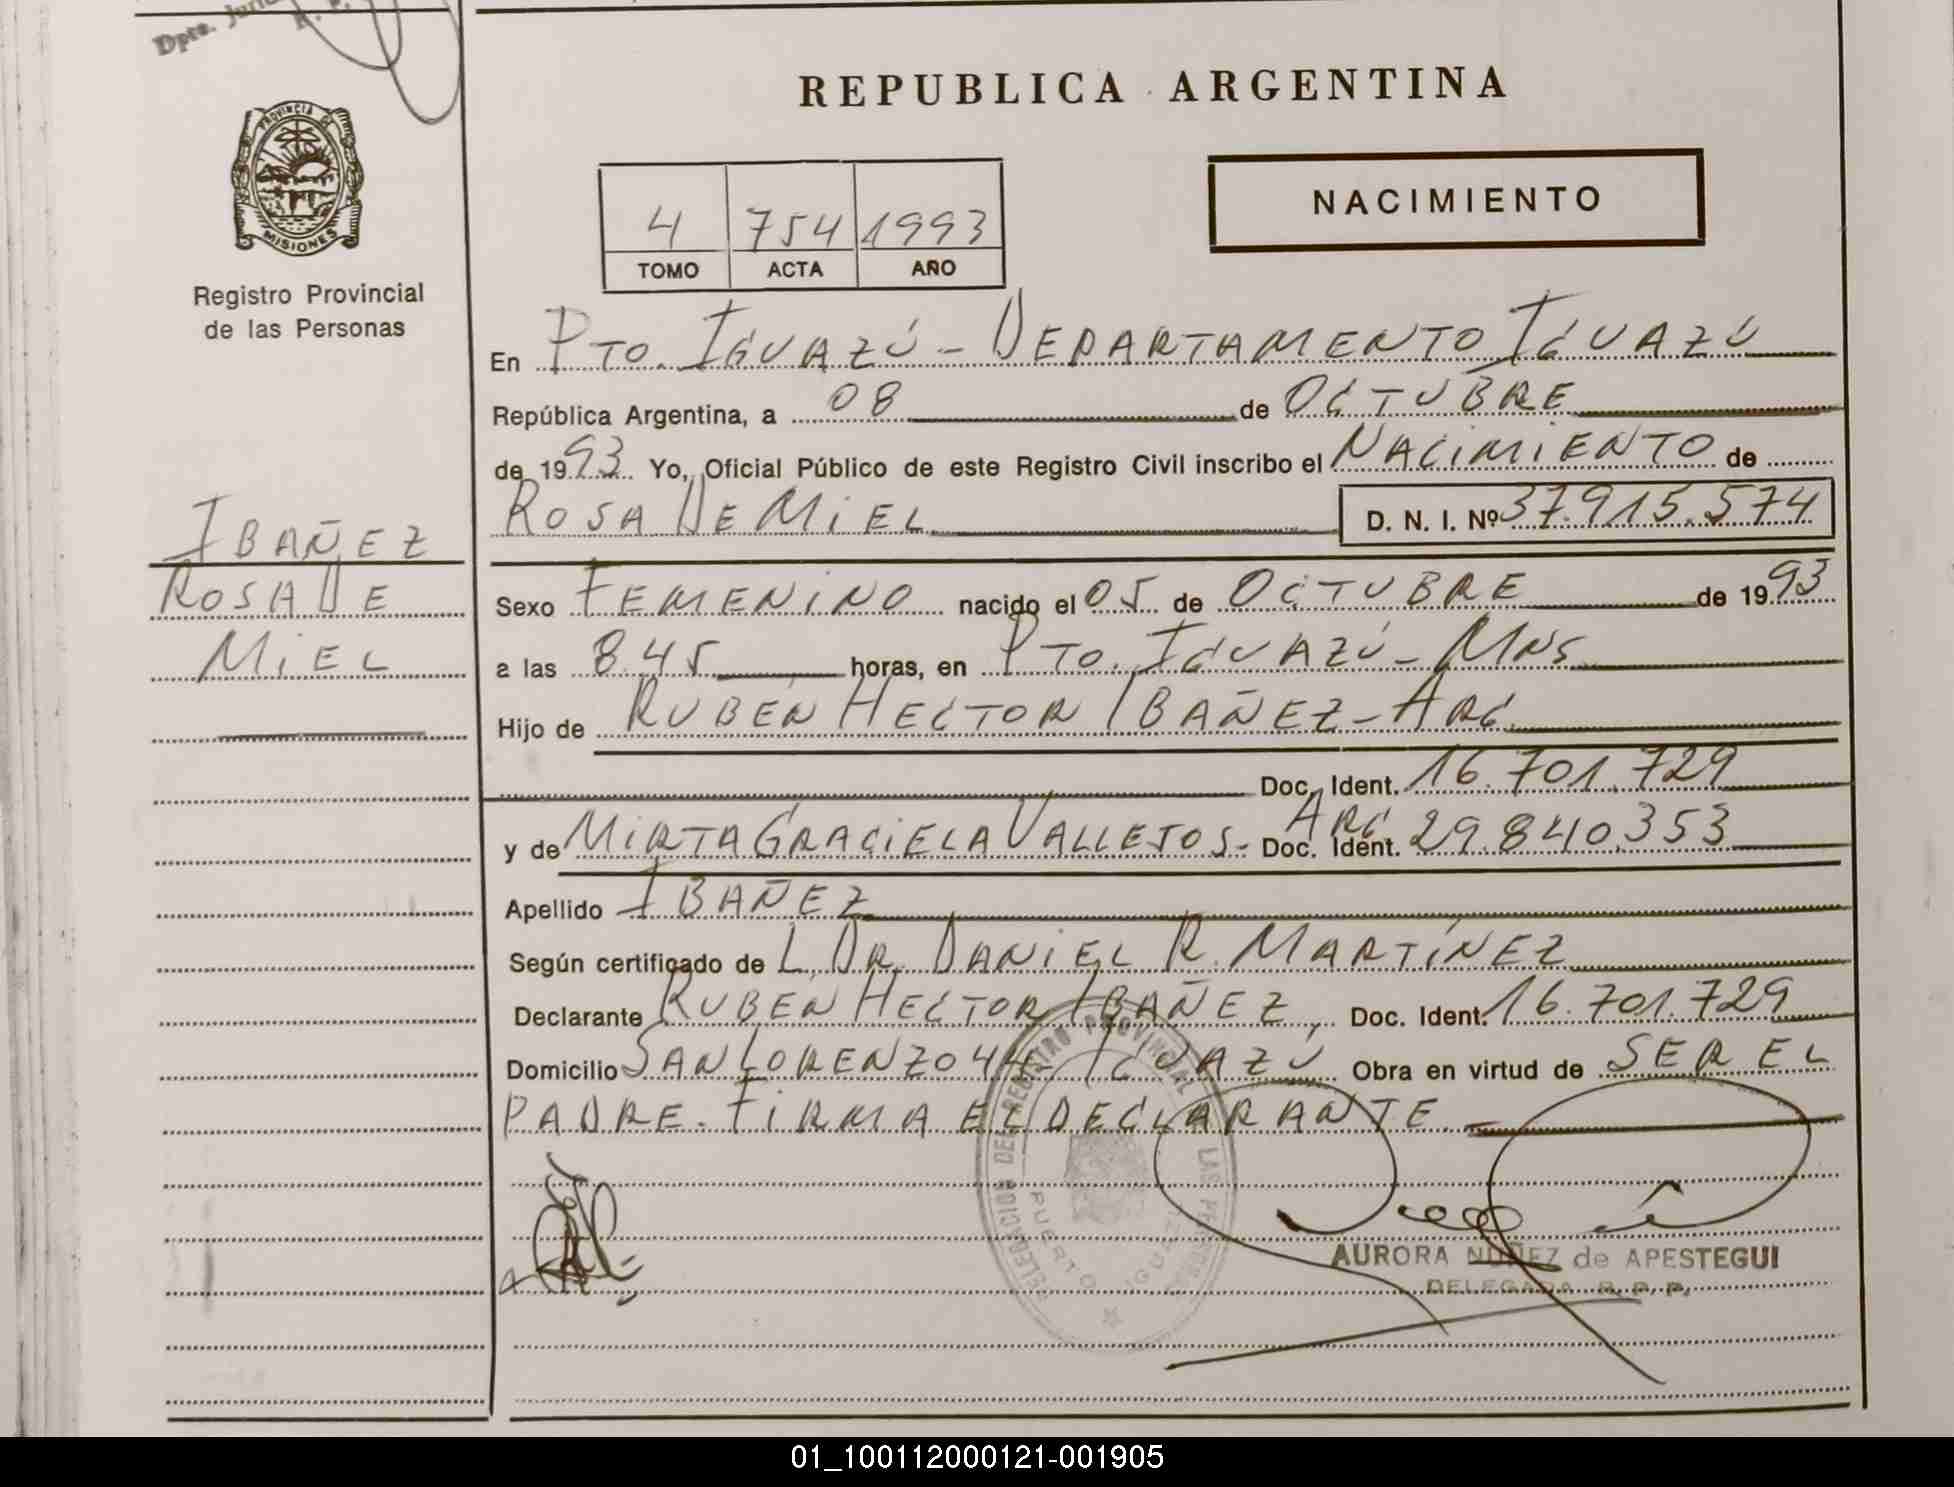 Dpto.
REPUBLICA ARGENTINA
PROVINCIA DE
MISIONES
Registro Provincial
de las Personas
NACIMIENTO
4 754 1993
TOMO ACTA AÑO
En PTO. IGUAZÚ - DEPARTAMENTO IGUAZÚ
República Argentina, a 08 de OCTUBRE
de 1993 Yo, Oficial Público de este Registro Civil inscribo el NACIMIENTO de
ROSA DE MIEL D. N. I. Nº 37.915.574
IBAÑEZ
ROSA DE
MIEL
Sexo FEMENINO nacido el 05 de OCTUBRE de 1993
a las 8.45 horas, en PTO. IGUAZÚ - MNS
Hijo de RUBÉN HECTOR IBAÑEZ - ARG.
Doc. Ident. 16.701.729
y de MIRTA GRACIELA VALLEJOS - ARG Doc. Ident. 29.840.353
Apellido IBAÑEZ
Según certificado de L. DR. DANIEL R. MARTÍNEZ
Declarante RUBÉN HECTOR IBAÑEZ, Doc. Ident. 16.701.729
Domicilio SAN LORENZO 44 - IGUAZÚ Obra en virtud de SER EL
PADRE. FIRMA EL DECLARANTE. -
DELEGACION DEL REGISTRO PROVINCIAL DE LAS PERSONAS
PUERTO IGUAZU
AURORA NUÑEZ de APESTEGUI
DELEGADA R. P. P.
01_100112000121-001905